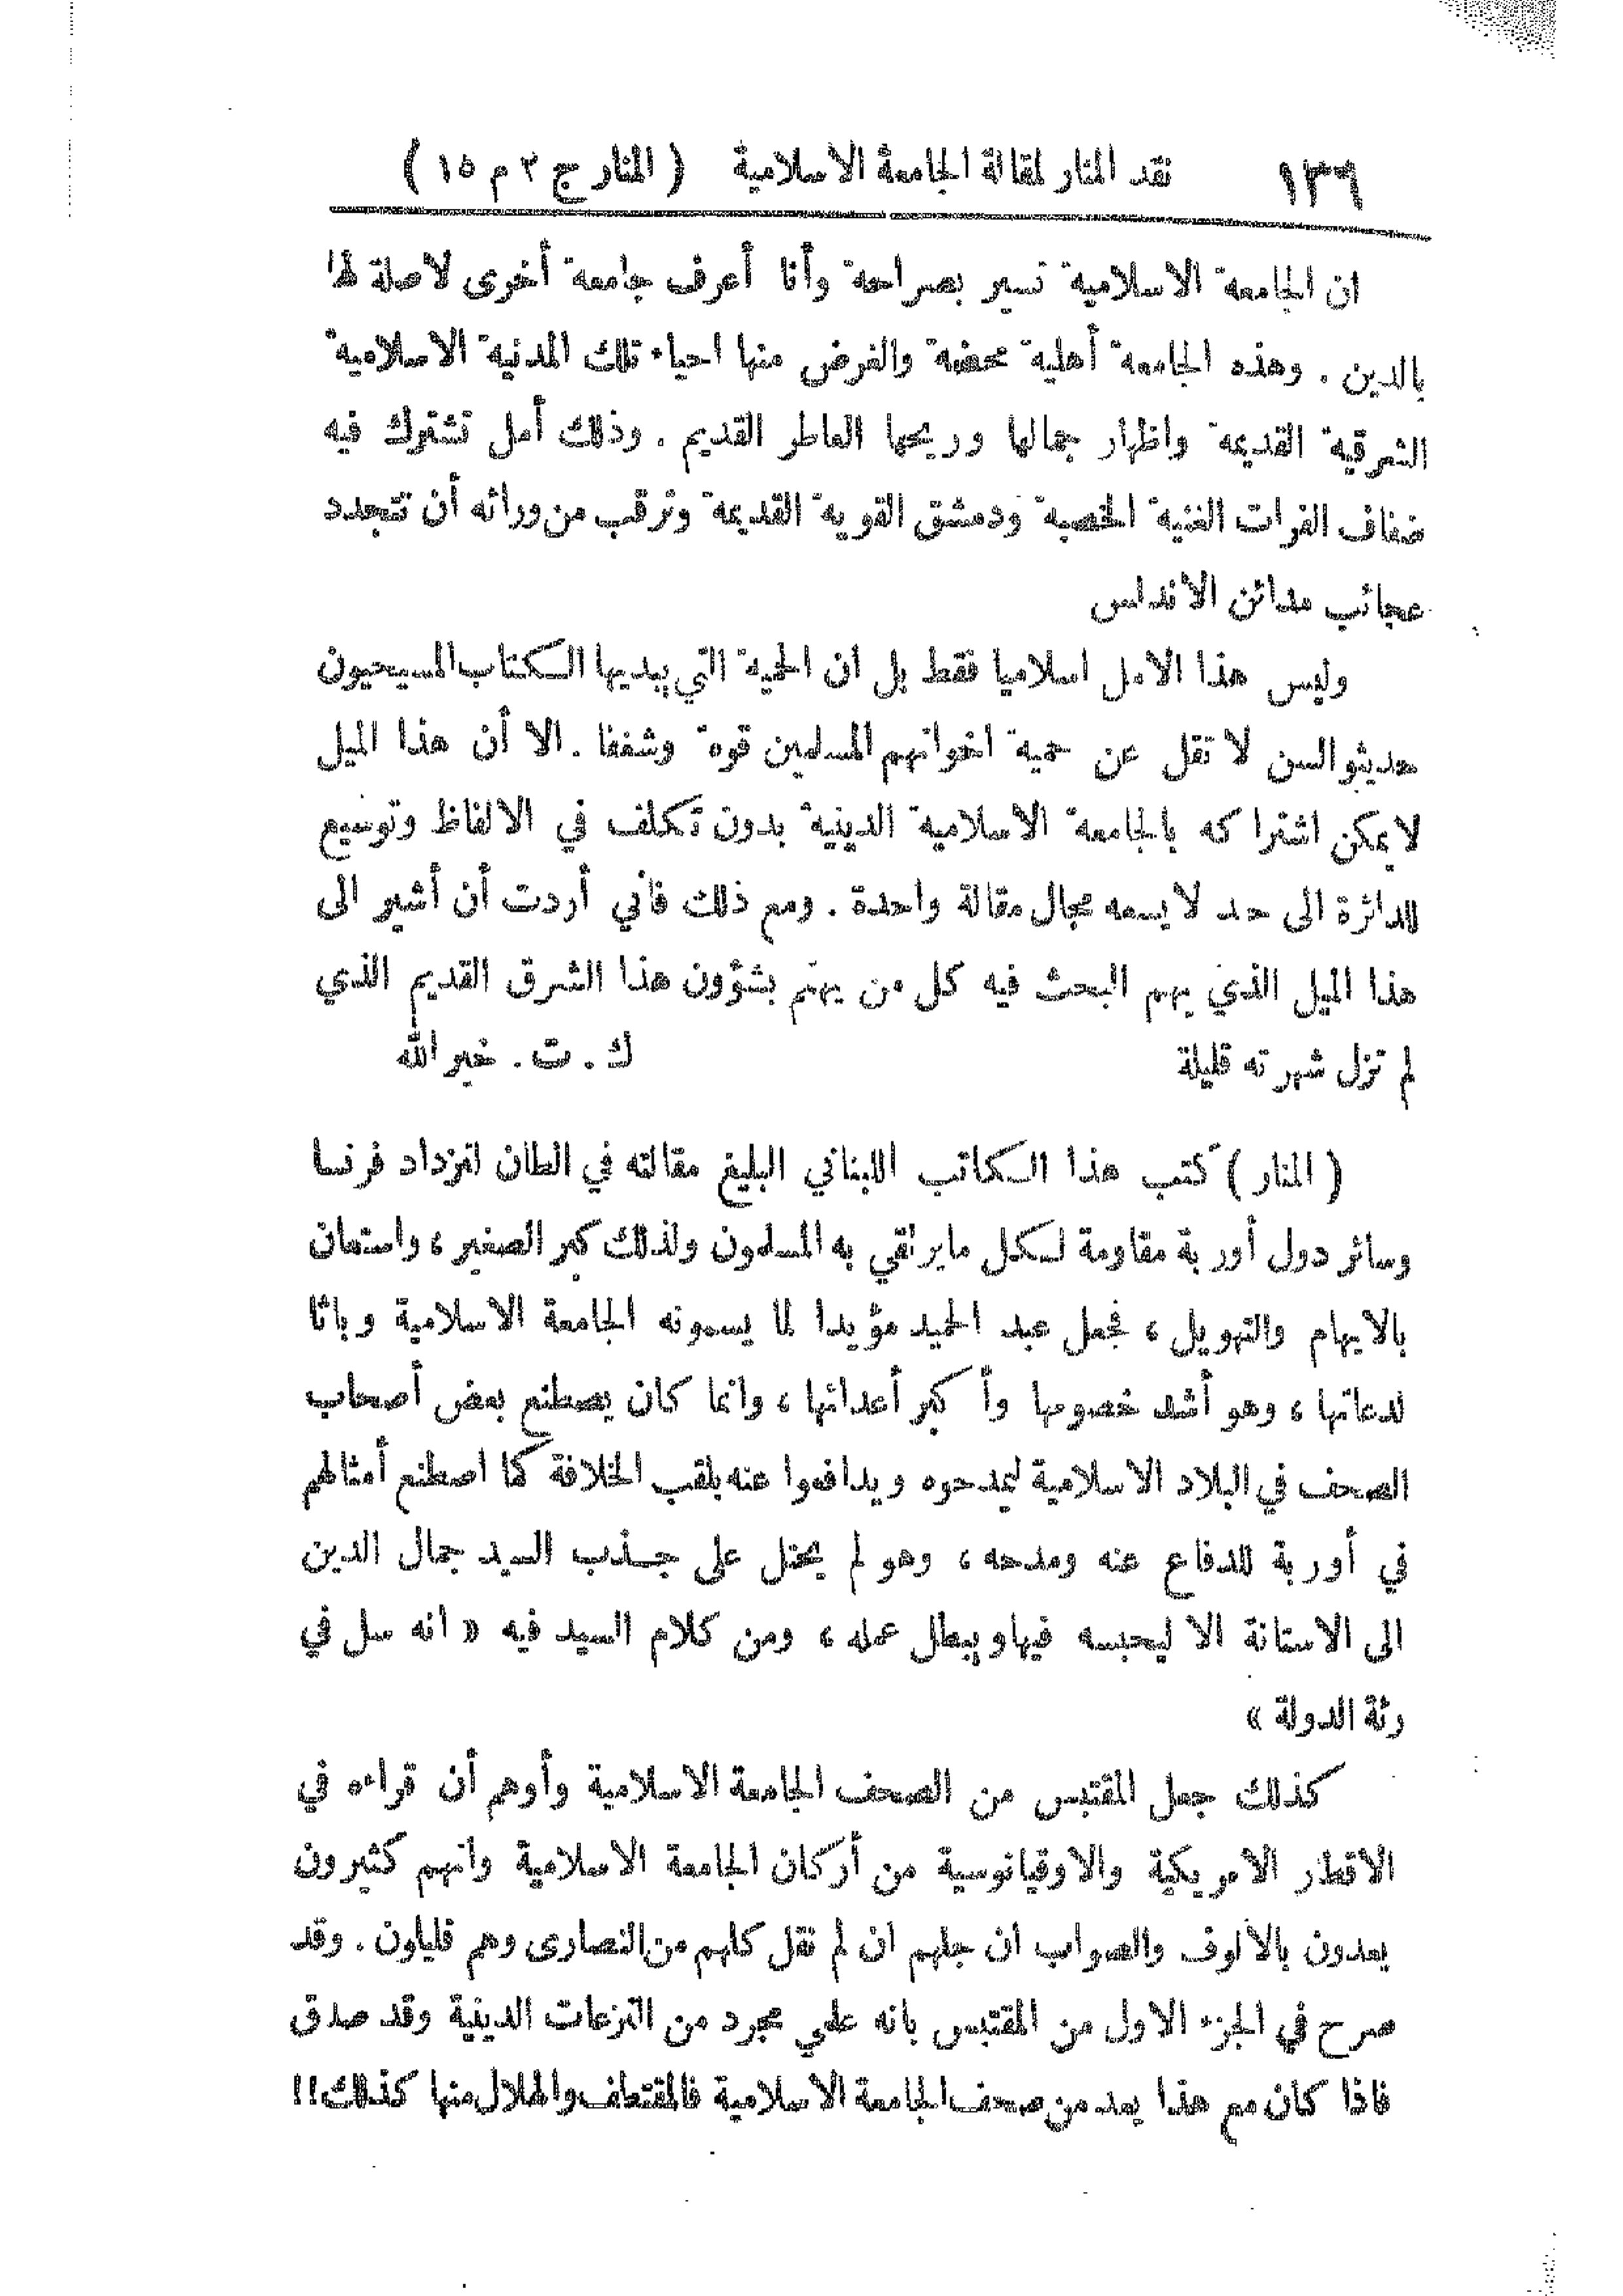 ١٣٦ نقد المنار لمقالة الجامعة الاسلامية ( المنار ج ٢ م ١٥ )
ان الجامعة الاسلامية تسير بصراحة وأنا أعرف جامعة أخرى لا صلة لها
بالدين . وهذه الجامعة أهلية محضة والغرض منها احياء تلك المدنية الاسلامية
الشرقية القديمة واظهار جمالها وريحها العاطر القديم . وذلك أمل تشترك فيه
ضفاف الفرات الغنية الخصبة ودمشق القوية القديمة وترقب من ورائه أن تتجدد
عجائب مدائن الاندلس
وليس هذا الامل اسلاميا فقط بل ان الحمية التي يبديها الكتاب المسيحيون
حديثو السن لا تقل عن حمية اخوانهم المسلمين قوة وشغفا . الا أن هذا الميل
لا يمكن اشتراكه بالجامعة الاسلامية الدينية بدون تكلف في الالفاظ وتوسيع
للدائرة الى حد لا يسعه مجال مقالة واحدة . ومع ذلك فاني أردت أن أشير الى
هذا الميل الذي يهم البحث فيه كل من يهتم بشؤون هذا الشرق القديم الذي
لم تزل شهرته قليلة ك . ت . خير الله
( المنار ) كتب هذا الكاتب اللبناني البليغ مقالته في الطان لتزداد فرنسا
وسائر دول أوربة مقاومة لكل ما يرتقي به المسلمون ولذلك كبر الصغير ، واستعان
بالايهام والتهويل ، فجعل عبد الحميد مؤيدا لما يسمونه الجامعة الاسلامية وباثا
لدعاتها ، وهو أشد خصومها وأكبر أعدائها ، وانما كان يصطنع بعض أصحاب
الصحف في البلاد الاسلامية ليمدحوه ويدافعوا عنه بلقب الخلافة كما اصطنع أمثالهم
في أوربة للدفاع عنه ومدحه ، وهو لم يحتل على جذب السيد جمال الدين
الى الاستانة الا ليحبسه فيها ويبطل عمله ، ومن كلام السيد فيه « انه سل في
رئة الدولة »
كذلك جعل المقتبس من الصحف الجامعة الاسلامية وأوهم أن قراءه في
الاقطار الامريكية والاوقيانوسية من أركان الجامعة الاسلامية وانهم كثيرون
يعدون بالالوف والصواب ان جلهم ان لم نقل كلهم من النصارى وهم قليلون . وقد
صرح في الجزء الاول من المقتبس بانه علمي مجرد من النزعات الدينية وقد صدق
فاذا كان مع هذا يعد من صحف الجامعة الاسلامية فالمقتطف والهلال منها كذلك !!